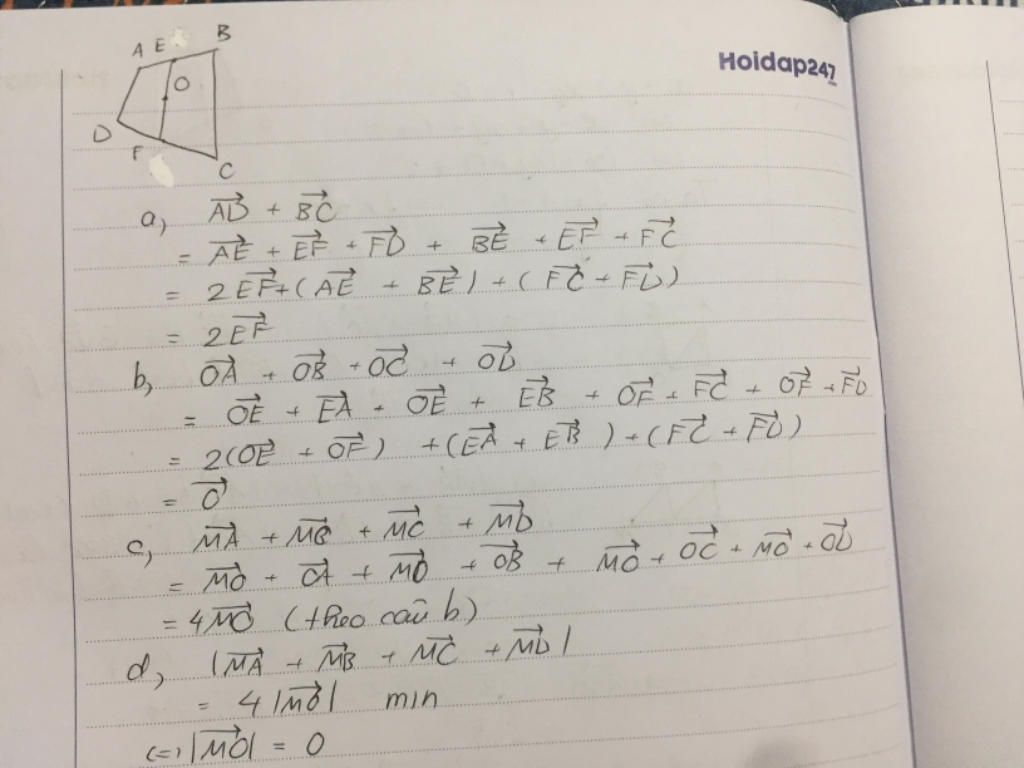 A E B
Hoidap247
O
D
F
C
a, AD→ + BC→
= AE→ + EF→ + FD→ + BE→ + EF→ + FC→
= 2EF→ + (AE→ + BE→) + (FC→ + FD→)
= 2EF→
b, OA→ + OB→ + OC→ + OD→
= OE→ + EA→ + OE→ + EB→ + OF→ + FC→ + OF→ + FD→
= 2(OE→ + OF→) + (EA→ + EB→) + (FC→ + FD→)
= O→
c, MA→ + MB→ + MC→ + MD→
= MO→ + OA→ + MO→ + OB→ + MO→ + OC→ + MO→ + OD→
= 4MO→ (theo câu b)
d, |MA→ + MB→ + MC→ + MD→|
= 4|MO→| min
(=) |MO→| = 0